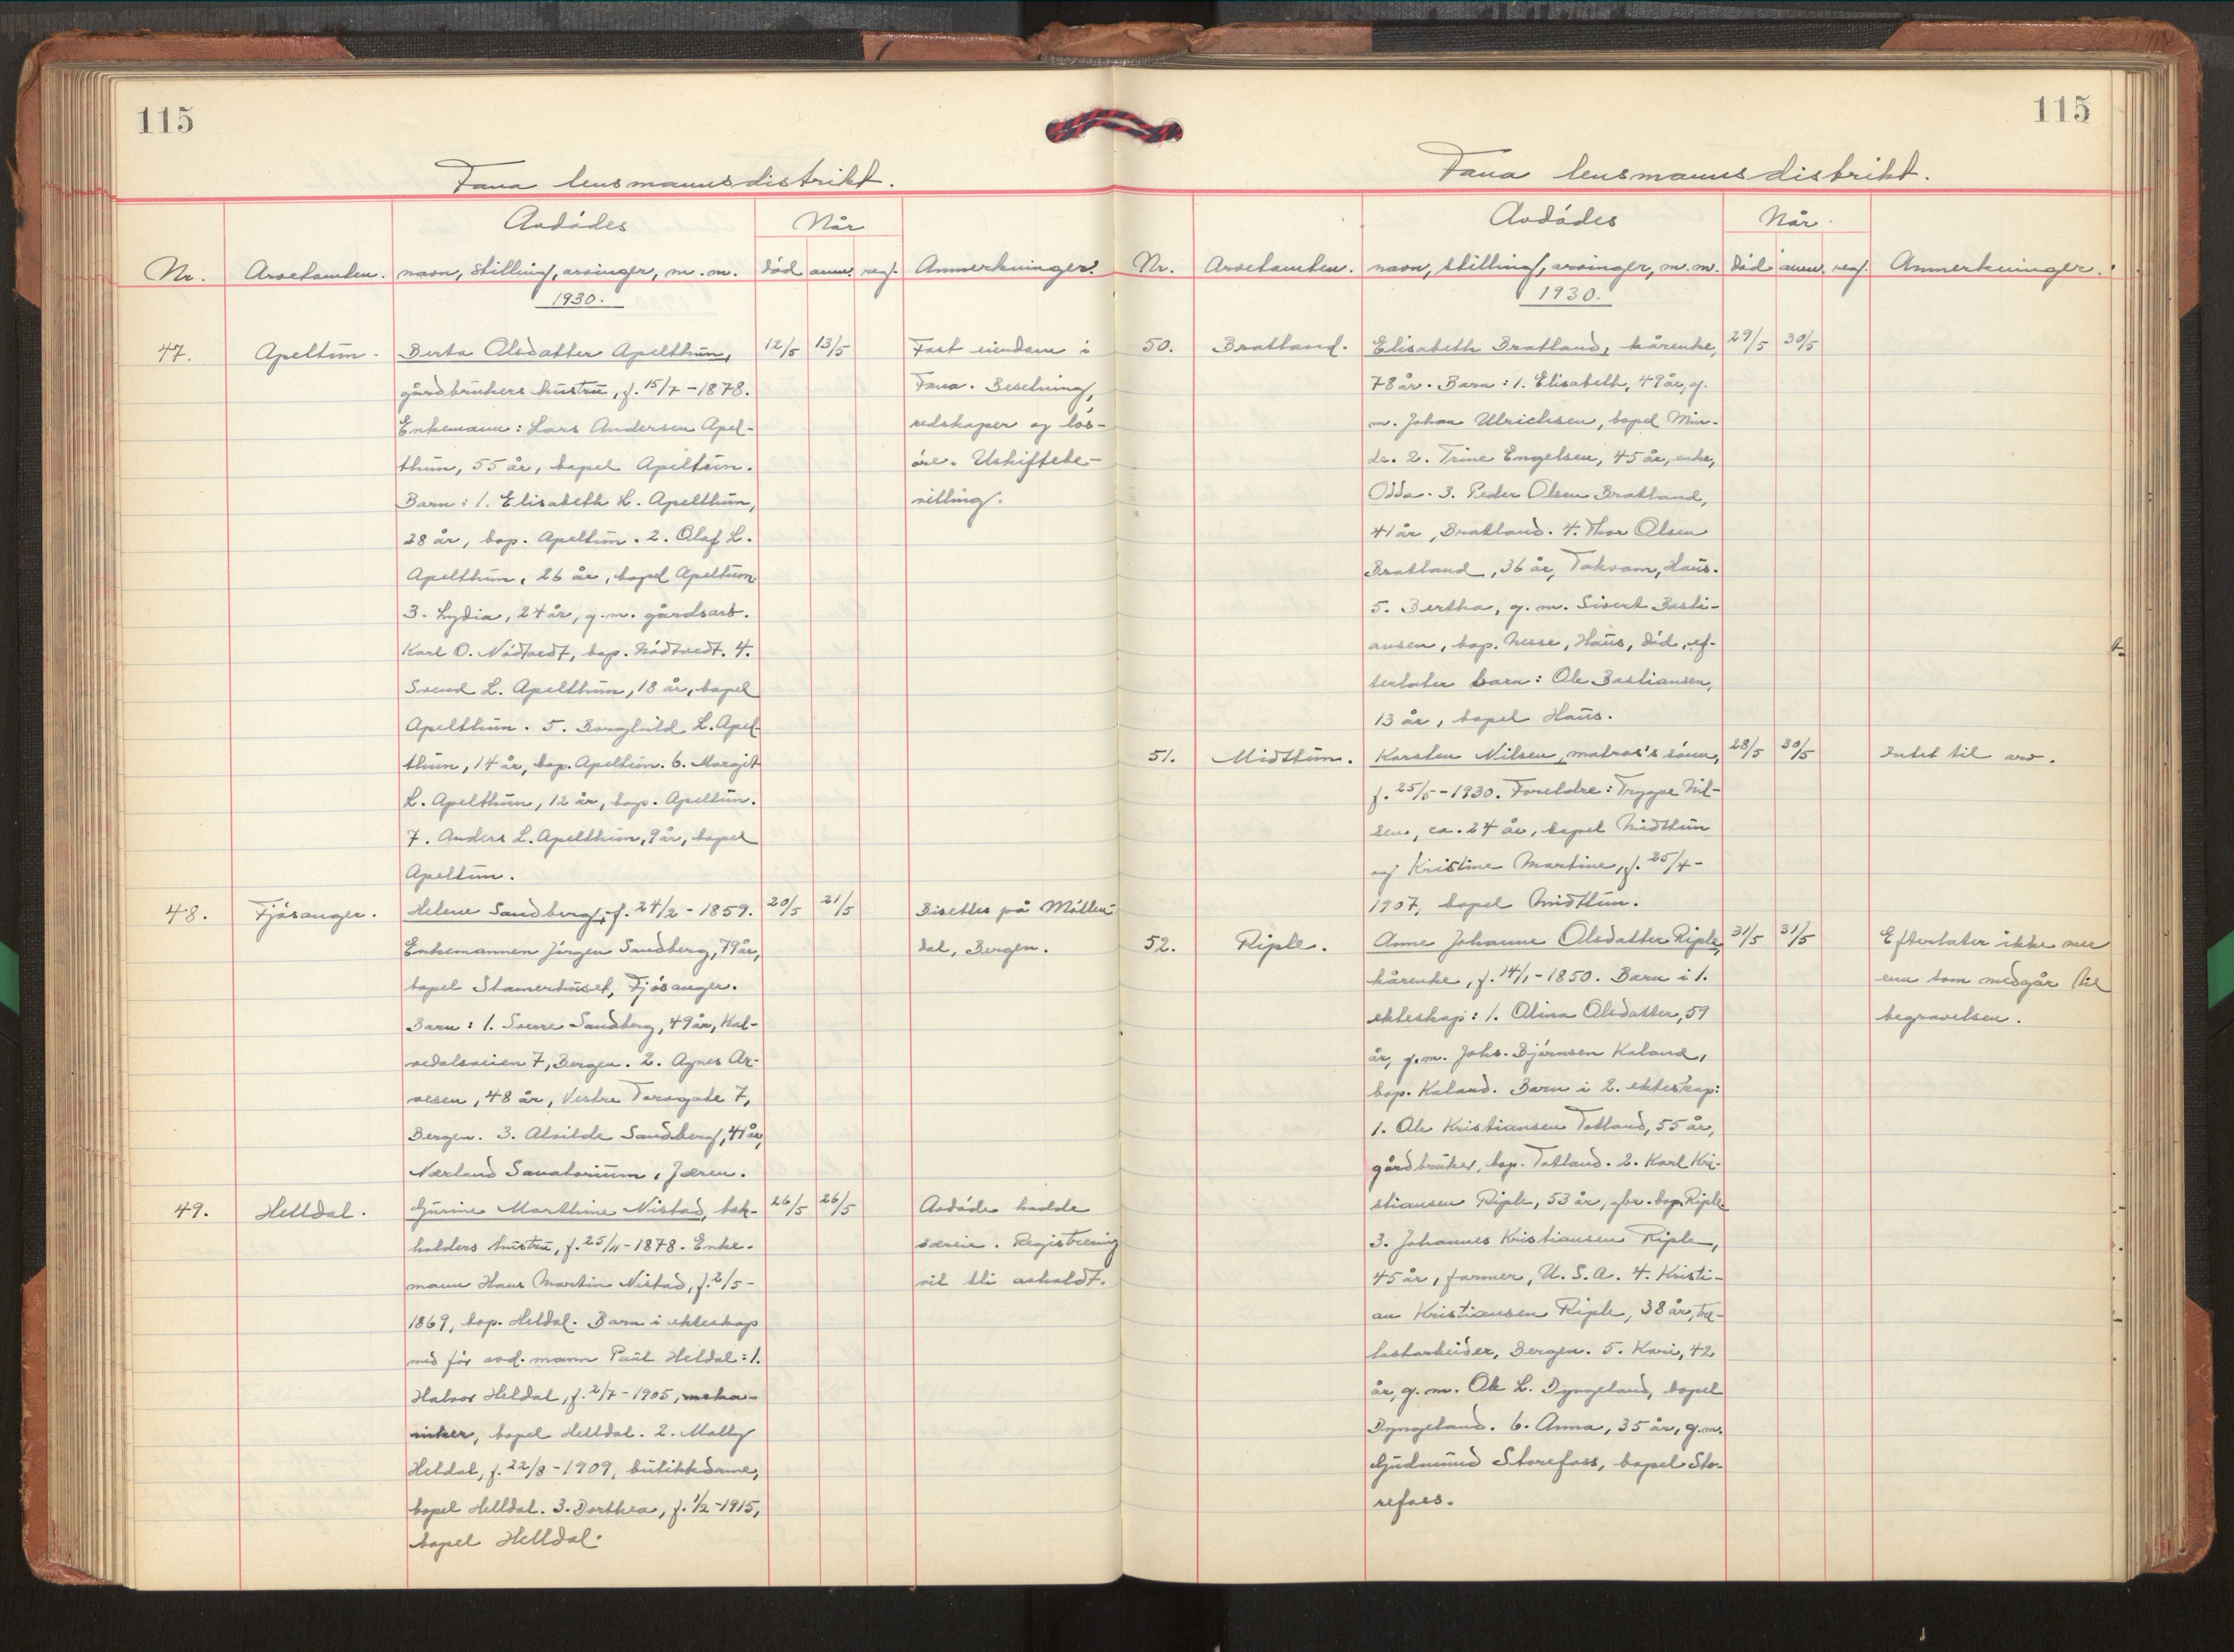 115
Fana lensmannsdistrikt.
Avdødes
Når
Nr. Arvetomten. navn, stilling, arvinger, m. m. død anm. reg. Anmerkninger.
1930.
47. Apeltun. Berta Olsdatter Apelthun, 12/5 13/5 Fast eiendom i
gårdbrukers hustru, f. 15/7-1878. Fana. Besetning,
Enkemann: Lars Andersen Apel- redskaper og løs-
thun, 55 år, bopel Apeltun. øre. Uskiftebe-
Barn: 1. Elisabeth L. Apelthun, villing.
28 år, bop. Apeltun. 2. Olaf L.
Apelthun, 26 år, bopel Apeltun
3. Lydia, 24 år, g.m. gårdsarb.
Karl O. Nødtvedt, bop. Nødtvedt. 4.
Svend L. Apelthun, 18 år, bopel
Apelthun. 5. Borghild L. Apel-
thun, 14 år, bop. Apeltun. 6. Margit
L. Apelthun, 12 år, bop. Apeltun.
7. Anders L. Apelthun, 9 år, bopel
Apeltun.
48. Fjøsanger. Helene Sandberg, f. 24/2-1859. 20/5 21/5 Bisettes på Møllen-
Enkemannen Jørgen Sandberg, 79 år, dal, Bergen.
bopel Stamerhuset, Fjøsanger.
Barn: 1. Sverre Sandberg, 49 år, Kal-
vedalsveien 7, Bergen. 2. Agnes Ar-
vesen, 48 år, Vestre Torvgate 7,
Bergen. 3. Alvilde Sandberg, 41 år,
Nærland Sanatorium, Jæren.
49. Helldal. Gurine Marthine Nistad, bok- 26/5 26/5 Avdøde hadde
holders hustru, f. 25/11-1878. Enke- særeie. Registrering
mann Hans Martin Nistad, f. 2/5- vil bli avholdt.
1869, bop. Heldal. Barn i ekteskap
med før avd. mann Paul Heldal: 1.
Halvor Heldal, f. 2/7-1905, meka-
niker, bopel Helldal. 2. Molly
Heldal, f. 22/8-1909, butikkdame,
bopel Helldal. 3. Dorthea, f. 1/2-1915,
bopel Helldal.
115
Fana lensmannsdistrikt.
Avdødes
Når
Nr. Arvetomten. navn, stilling, arvinger, m. m. død anm. reg. Anmerkninger.
1930.
50. Bratland. Elisabeth Bratland, kårenke, 29/5 30/5
78 år. Barn: 1. Elisabeth, 49 år, g.
m. Johan Ulrichsen, bopel Min-
de. 2. Trine Engelsen, 45 år, enke,
Odda. 3. Peder Olsen Bratland,
41 år, Bratland. 4. Thor Olsen
Bratland, 36 år, Takvam, Haus.
5. Bertha, g. m. Sivert Basti-
ansen, bop. Nesse, Haus, død, ef-
terlater barn: Ole Bastiansen,
13 år, bopel Haus.
51. Midttun. Karsten Nilsen, matros's sønn, 28/5 30/5 Intet til arv.
f. 25/5-1930. Foreldre: Trygve Nil-
sen, ca. 24 år, bopel Midttun
og Kristine Martine, f. 25/4-
1907, bopel Midttun.
52. Riple. Anne Johanne Olsdatter Riple, 31/5 31/5 Efterlater ikke mer
kårenke, f. 14/1-1850. Barn i 1. enn som medgår til
ekteskap: 1. Olina Olsdatter, 59 begravelsen.
år, g.m. Johs. Bjørnsen Kaland,
bop. Kaland. Barn i 2. ekteskap:
1. Ole Kristiansen Totland, 55 år,
gårdbruker, bop. Totland. 2. Karl Kri-
stiansen Riple, 53 år, gbr. bop. Riple
3. Johannes Kristiansen Riple,
45 år, farmer, U. S. A. 4. Kristi-
an Kristiansen Riple, 38 år, tre-
lastarbeider, Bergen. 5. Kari, 42
år, g. m. Ole L. Dyngeland, bopel
Dyngeland. 6. Anna, 35 år, g.m.
Gudmund Storefoss, bopel Sto-
refoss.